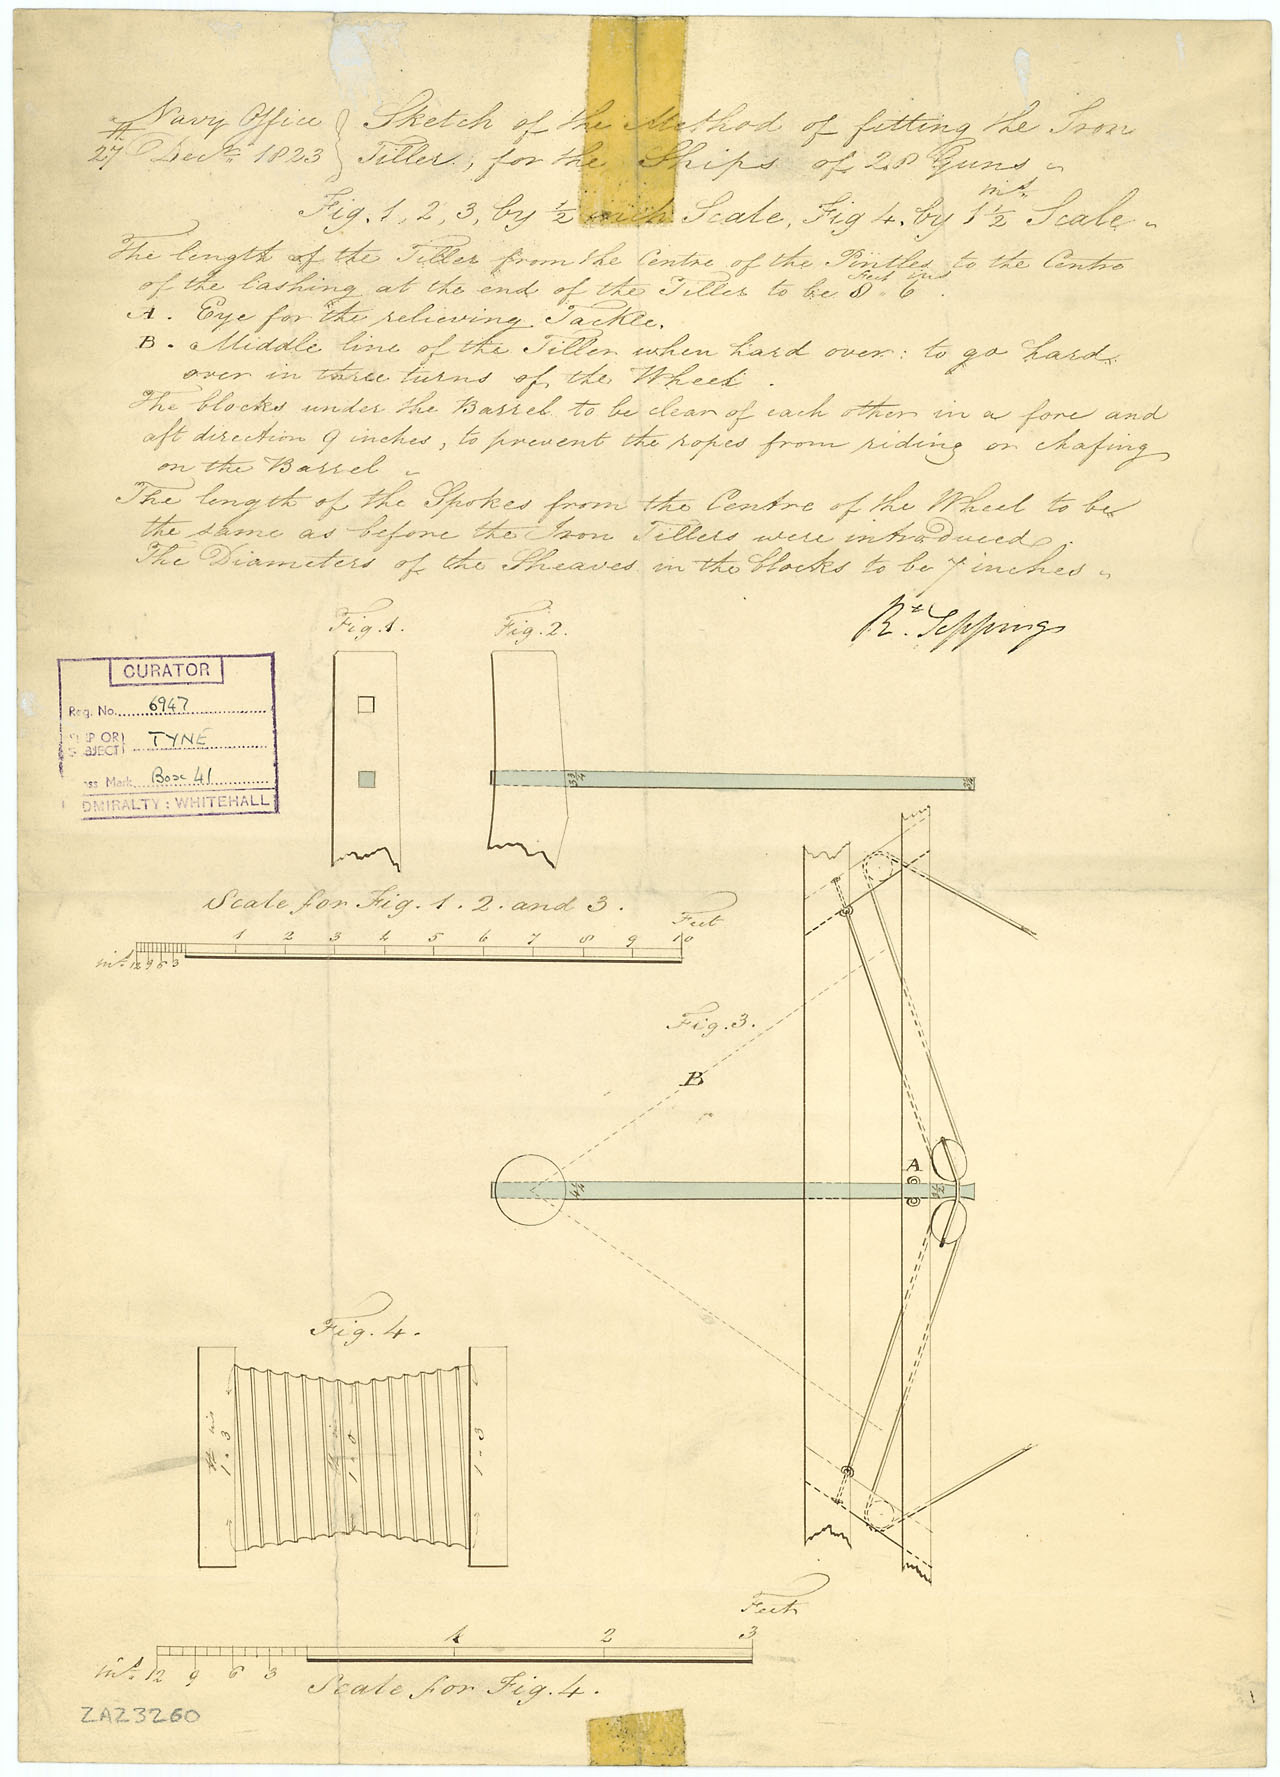 Navy Office } Sketch of the Method of fitting the Iron
27th Decr. 1823 } Tiller, for the Ships of 28 Guns
Fig. 1, 2, 3, by ½ inch Scale, Fig 4. by 1½ ins. Scale
The length of the Tiller from the Centre of the Pintles to the Centre
of the lashing at the end of the Tiller to be 8 Feet 6 ins.
A. Eye for the relieving Tackle.
B. Middle line of the Tiller when hard over: to go hard
over in three turns of the Wheel.
The blocks under the Barrel to be clear of each other in a fore and
aft direction 9 inches, to prevent the ropes from riding or chafing
on the Barrel
The length of the Spokes from the Centre of the Wheel to be
the same as before the Iron Tillers were introduced.
The Diameters of the Sheaves in the blocks to be 7 inches
Rt. Seppings
Fig. 1.
Fig. 2.
CURATOR
Reg. No. 6947
SHIP OR SUBJECT TYNE
ss Mark Box 41
ADMIRALTY: WHITEHALL
3¾
Scale for Fig. 1. 2. and 3.
Feet
ins. 12 9 6 3 1 2 3 4 5 6 7 8 9 10
Fig. 3.
B
A
4¼
3½
Fig. 4.
ft ins
1-3
ft in
1-0
1-3
Feet
ins. 12 9 6 3 1 2 3
Scale for Fig. 4.
ZAZ3260